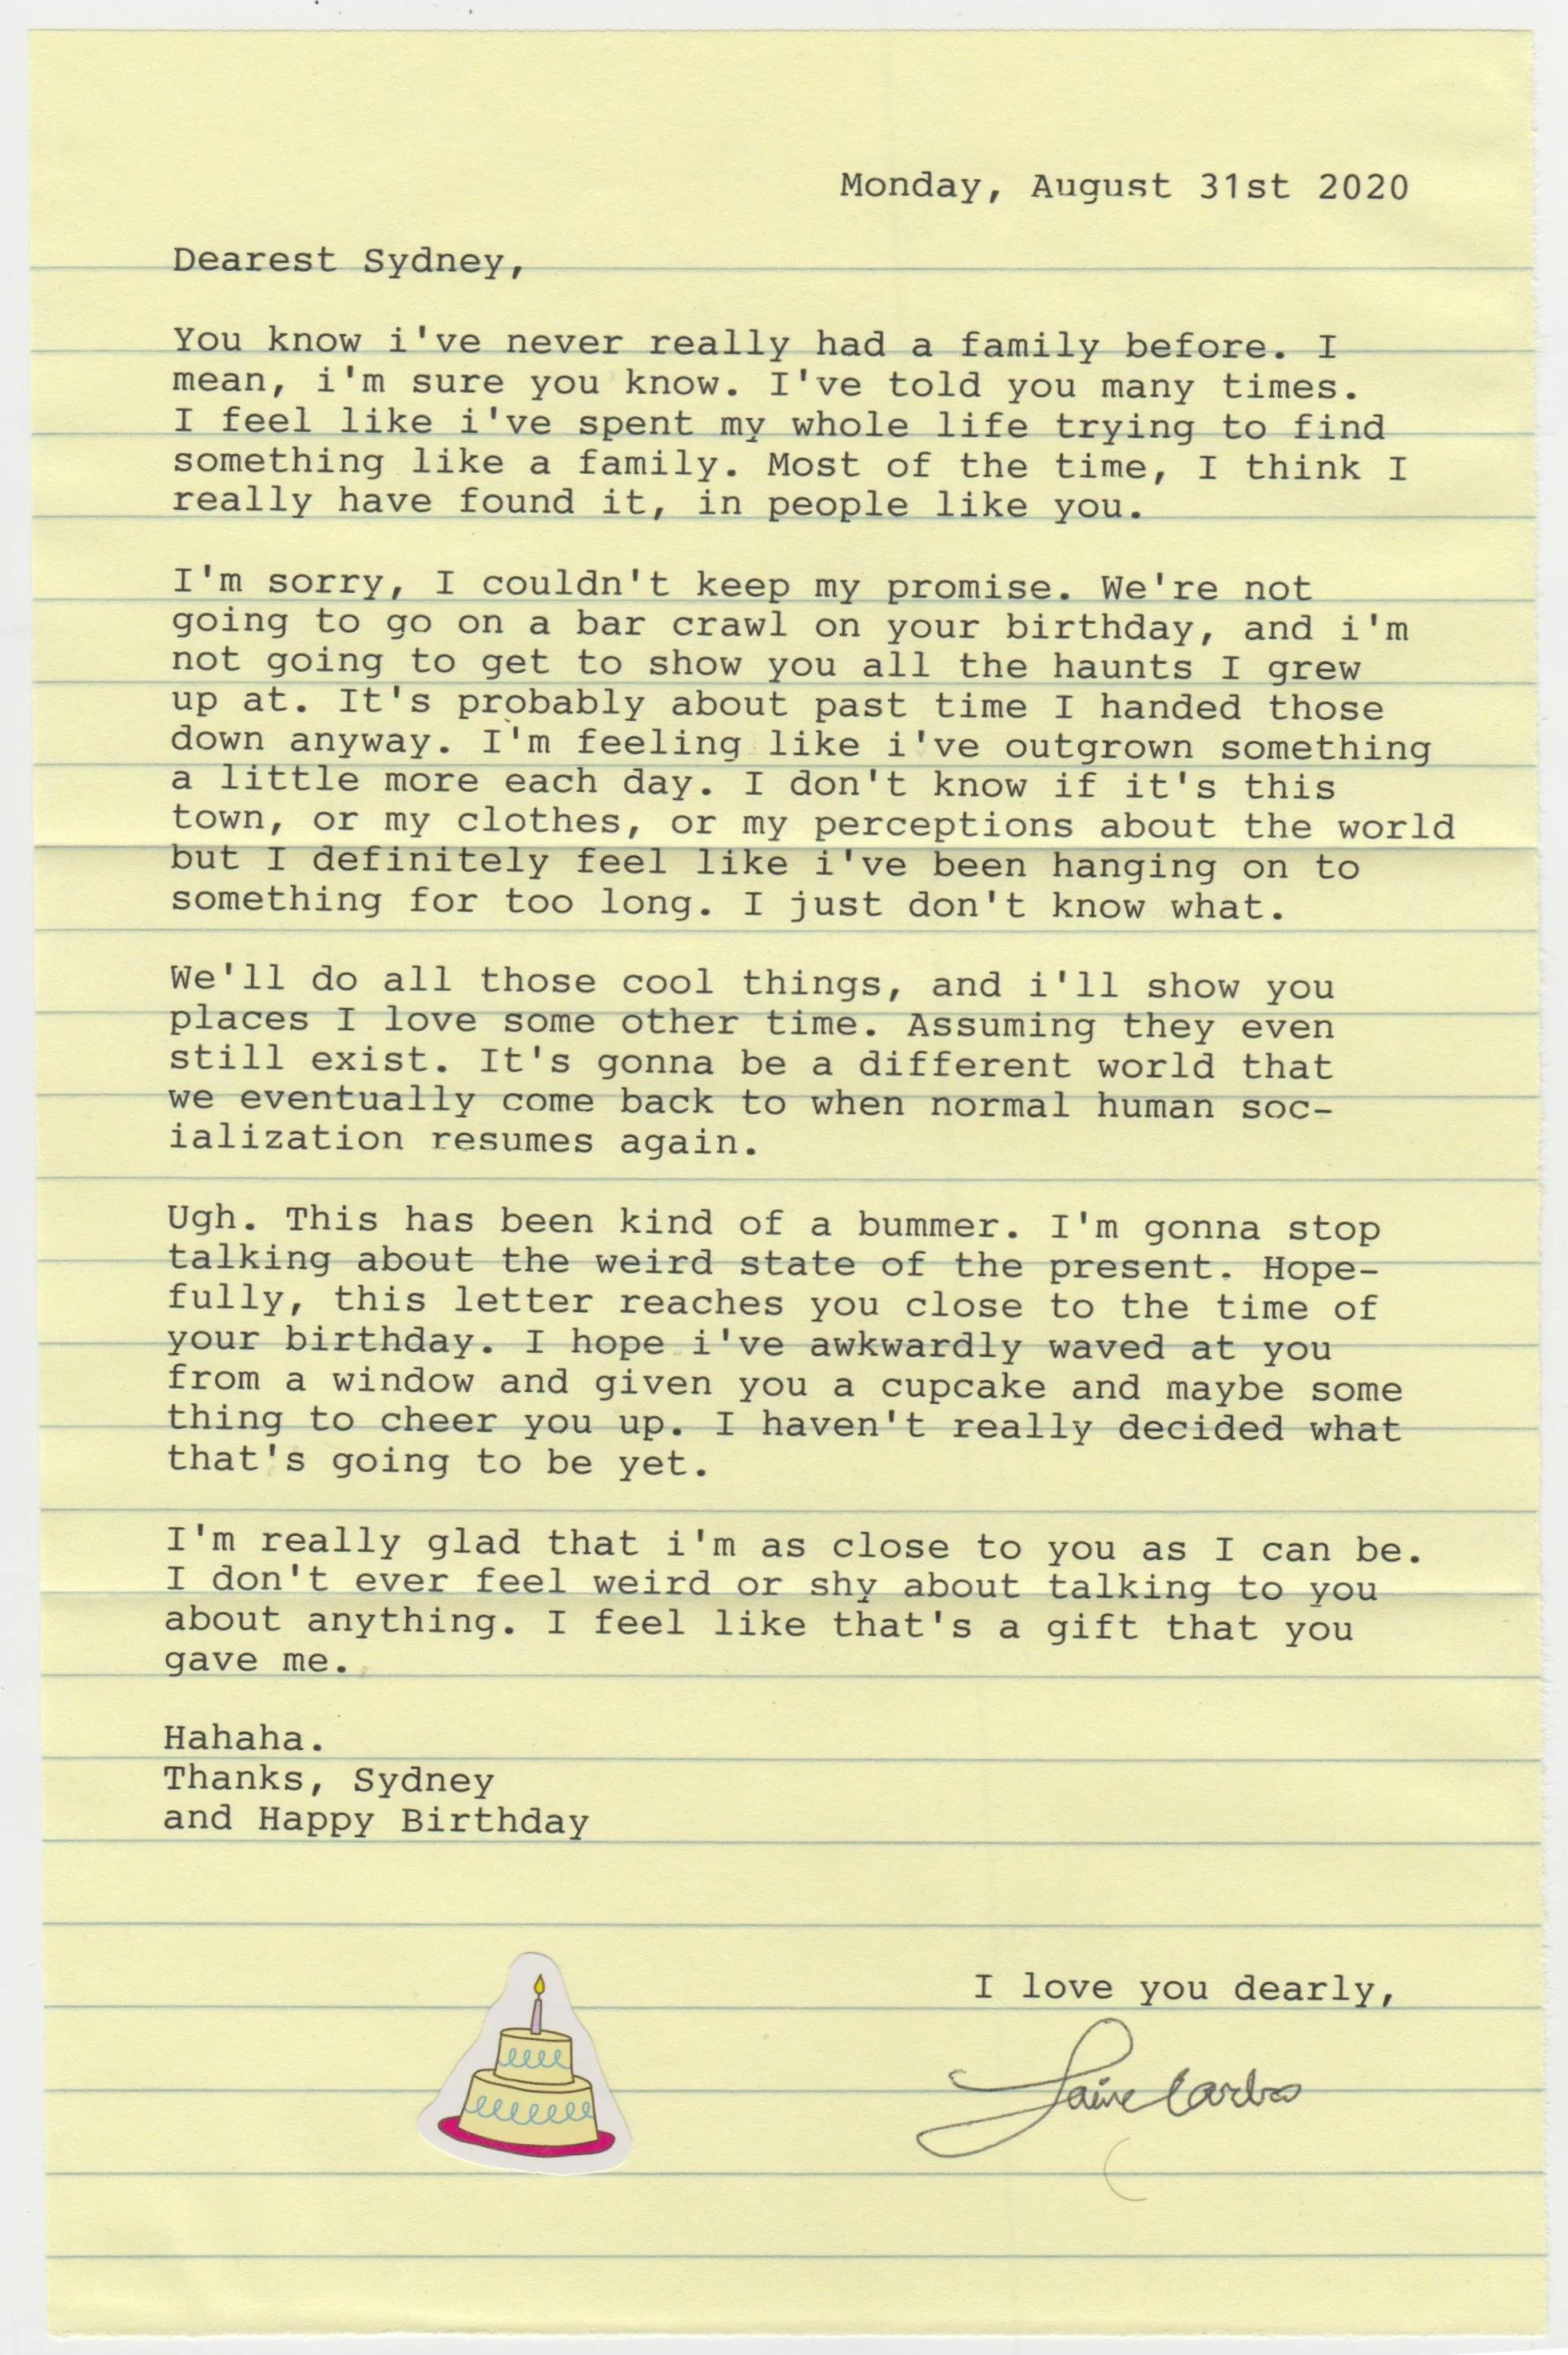 Monday, August 31st 2020
Dearest Sydney,
You know i've never really had a family before. I
mean, i'm sure you know. I've told you many times.
I feel like i've spent my whole life trying to find
something like a family. Most of the time, I think I
really have found it, in people like you.
I'm sorry, I couldn't keep my promise. We're not
going to go on a bar crawl on your birthday, and i'm
not going to get to show you all the haunts I grew
up at. It's probably about past time I handed those
down anyway. I'm feeling like i've outgrown something
a little more each day. I don't know if it's this
town, or my clothes, or my perceptions about the world
but I definitely feel like i've been hanging on to
something for too long. I just don't know what.
We'll do all those cool things, and i'll show you
places I love some other time. Assuming they even
still exist. It's gonna be a different world that
we eventually come back to when normal human soc-
ialization resumes again.
Ugh. This has been kind of a bummer. I'm gonna stop
talking about the weird state of the present. Hope-
fully, this letter reaches you close to the time of
your birthday. I hope i've awkwardly waved at you
from a window and given you a cupcake and maybe some
thing to cheer you up. I haven't really decided what
that's going to be yet.
I'm really glad that i'm as close to you as I can be.
I don't ever feel weird or shy about talking to you
about anything. I feel like that's a gift that you
gave me.
Hahaha.
Thanks, Sydney
and Happy Birthday
I love you dearly,